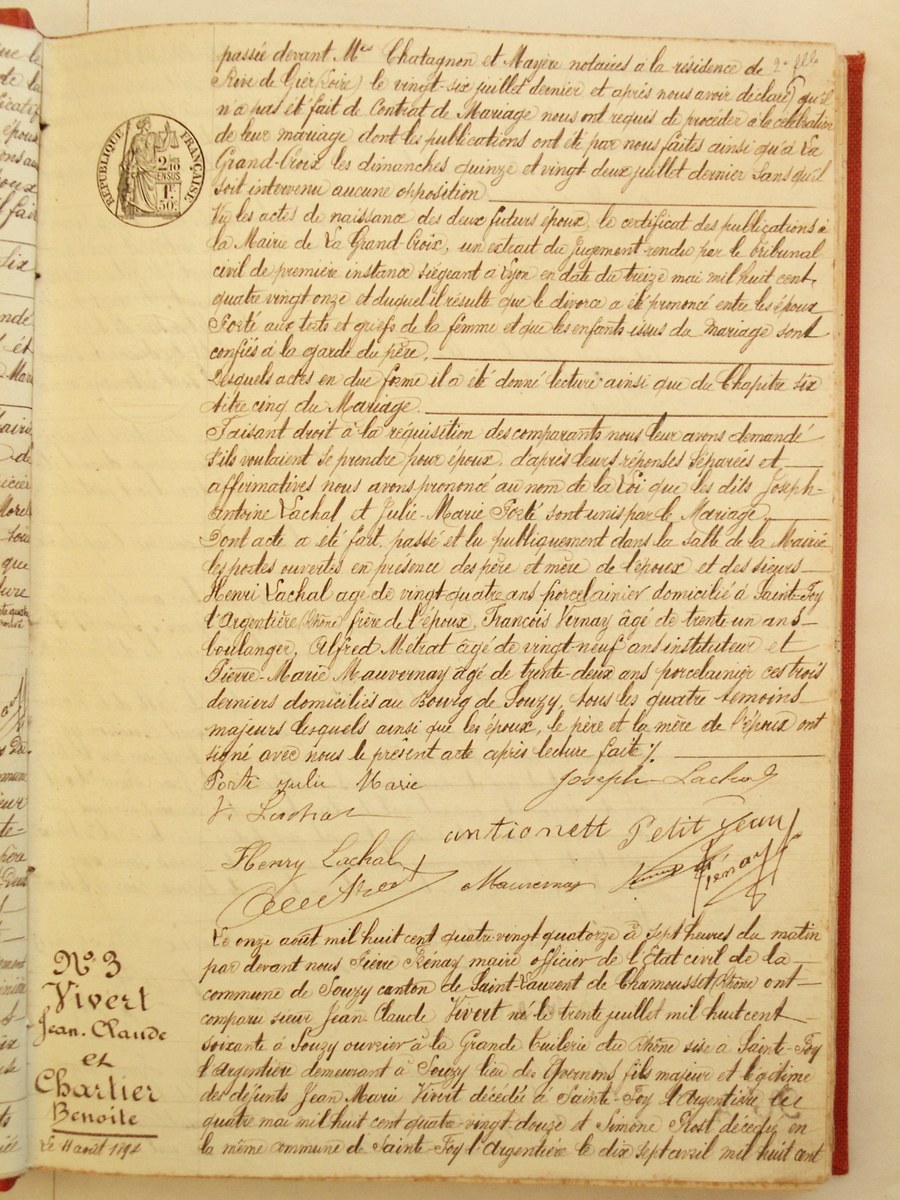 2e flle
passée devant Mes Chatagnon et Mayère notaires à la résidence de
Rive de Gier (Loire) le vingt-six juillet dernier et après nous avoir déclaré qu'il
n'a pas été fait de Contrat de Mariage nous ont requis de procéder à la célébration
de leur mariage dont les publications ont été par nous faites ainsi qu'à La
Grand-Croix les dimanches quinze et vingt deux juillet dernier sans qu'il
soit intervenu aucune opposition
RÉPUBLIQUE FRANÇAISE
2/10 EN SUS
1F 50c
Vu les actes de naissance des deux futurs époux, le certificat des publications à
la Mairie de La Grand-Croix, un extrait du jugement rendu par le tribunal
civil de première instance siégeant à Lyon en date du treize mai mil huit cent
quatre vingt onze et duquel il résulte que le divorce a été prononcé entre les époux
Porté aux torts et griefs de la femme et que les enfants issus du mariage sont
confiés à la garde du père.
Lesquels actes en due forme il a été donné lecture ainsi que du Chapitre six
titre cinq du Mariage
Faisant droit à la réquisition des comparants nous leur avons demandé
s'ils voulaient se prendre pour époux, d'après leurs réponses séparées et
affirmatives nous avons prononcé au nom de la Loi que les dits Joseph-
Antoine Lachal et Julie-Marie Porté sont unis par le Mariage
Dont acte a été fait, passé et lu publiquement dans la salle de la Mairie
les portes ouvertes en présence des père et mère de l'époux et des sieurs
Henri Lachal agé de vingt quatre ans porcelainier domicilié à Sainte-Foy
l'Argentière (Rhône) frère de l'époux, François Vernay âgé de trente-un ans
boulanger, Alfred Métrat âgé de vingt-neuf ans instituteur et
Pierre-Marie Mauvernay âgé de trente-deux ans porcelainier ces trois
derniers domiciliés au Bourg de Souzy, tous les quatre temoins
majeurs lesquels ainsi que les époux, le père et la mère de l'époux ont
signé avec nous le présent acte après lecture faite ./.
Porté Julie Marie Joseph Lachal
V. Lachal
antionett Petit Jean
Henry Lachal
Mauvernay Rénay
Le onze août mil huit cent quatre vingt quatorze à sept heures du matin
par devant nous Pierre Rénay maire officier de l'État civil de la
commune de Souzy canton de Saint-Laurent de Chamousset (Rhône) ont
comparu sieur Jean-Claude Vivert né le trente juillet mil huit cent
soixante à Souzy ouvrier à la Grande Tuilerie du Rhône sise à Sainte-Foy
l'Argentière demeurant à Souzy lieu de fils majeur et légitime
des défunts Jean Marie Vivert décédé à Sainte-Foy l'Argentière le
quatre mai mil huit cent quatre-vingt douze et Simone Rost décédée en
la même commune de Sainte-Foy l'Argentière le dix sept avril mil huit cent
No. 3
Vivert
Jean-Claude
et
Chartier
Benoite
Le 11 août 1894